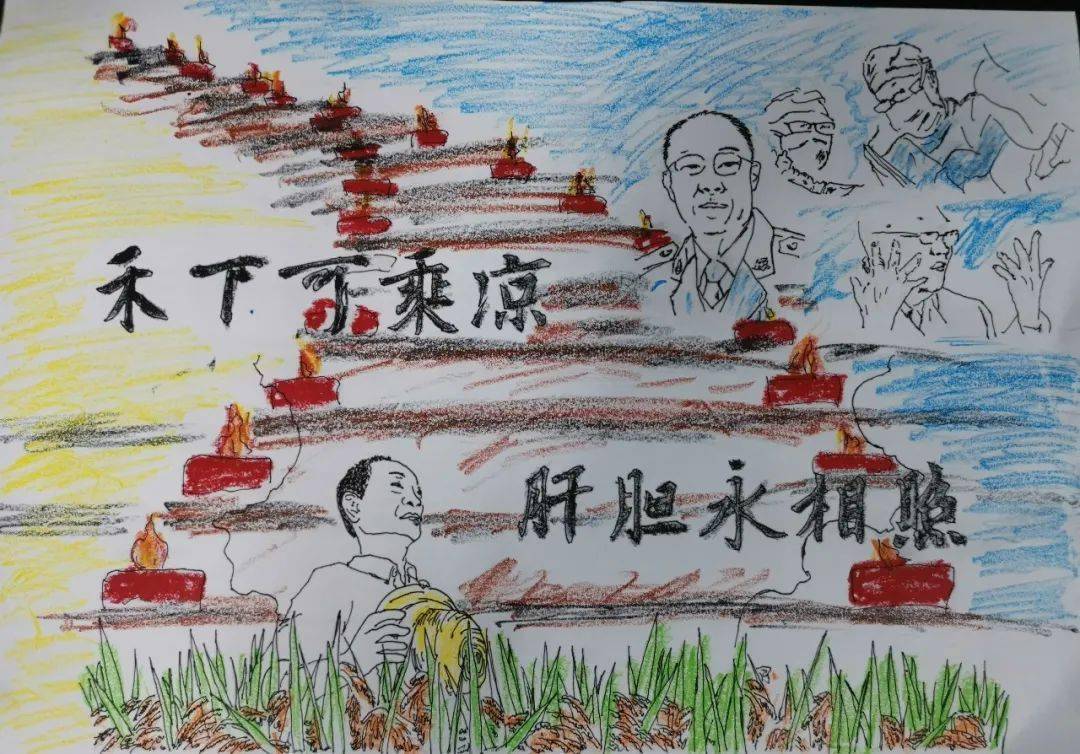 禾下可乘凉
肝胆永相照